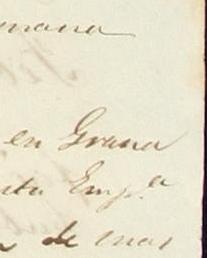 emana
en Grana
nta Emp.ª
de mas